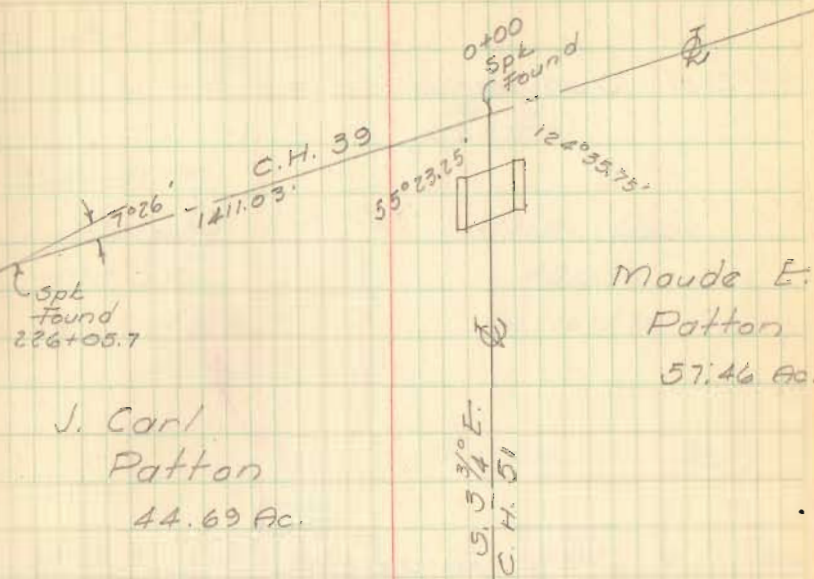 0+00
Spk
Found
C.H. 39
7°26'
1411.03'
55°23.25'
124°35.75'
Spk
Found
226+05.7
Maude E.
Patton
57.46 Ac.
J. Carl
Patton
44.69 Ac.
S. 3 3/4° E.
C. H. 51